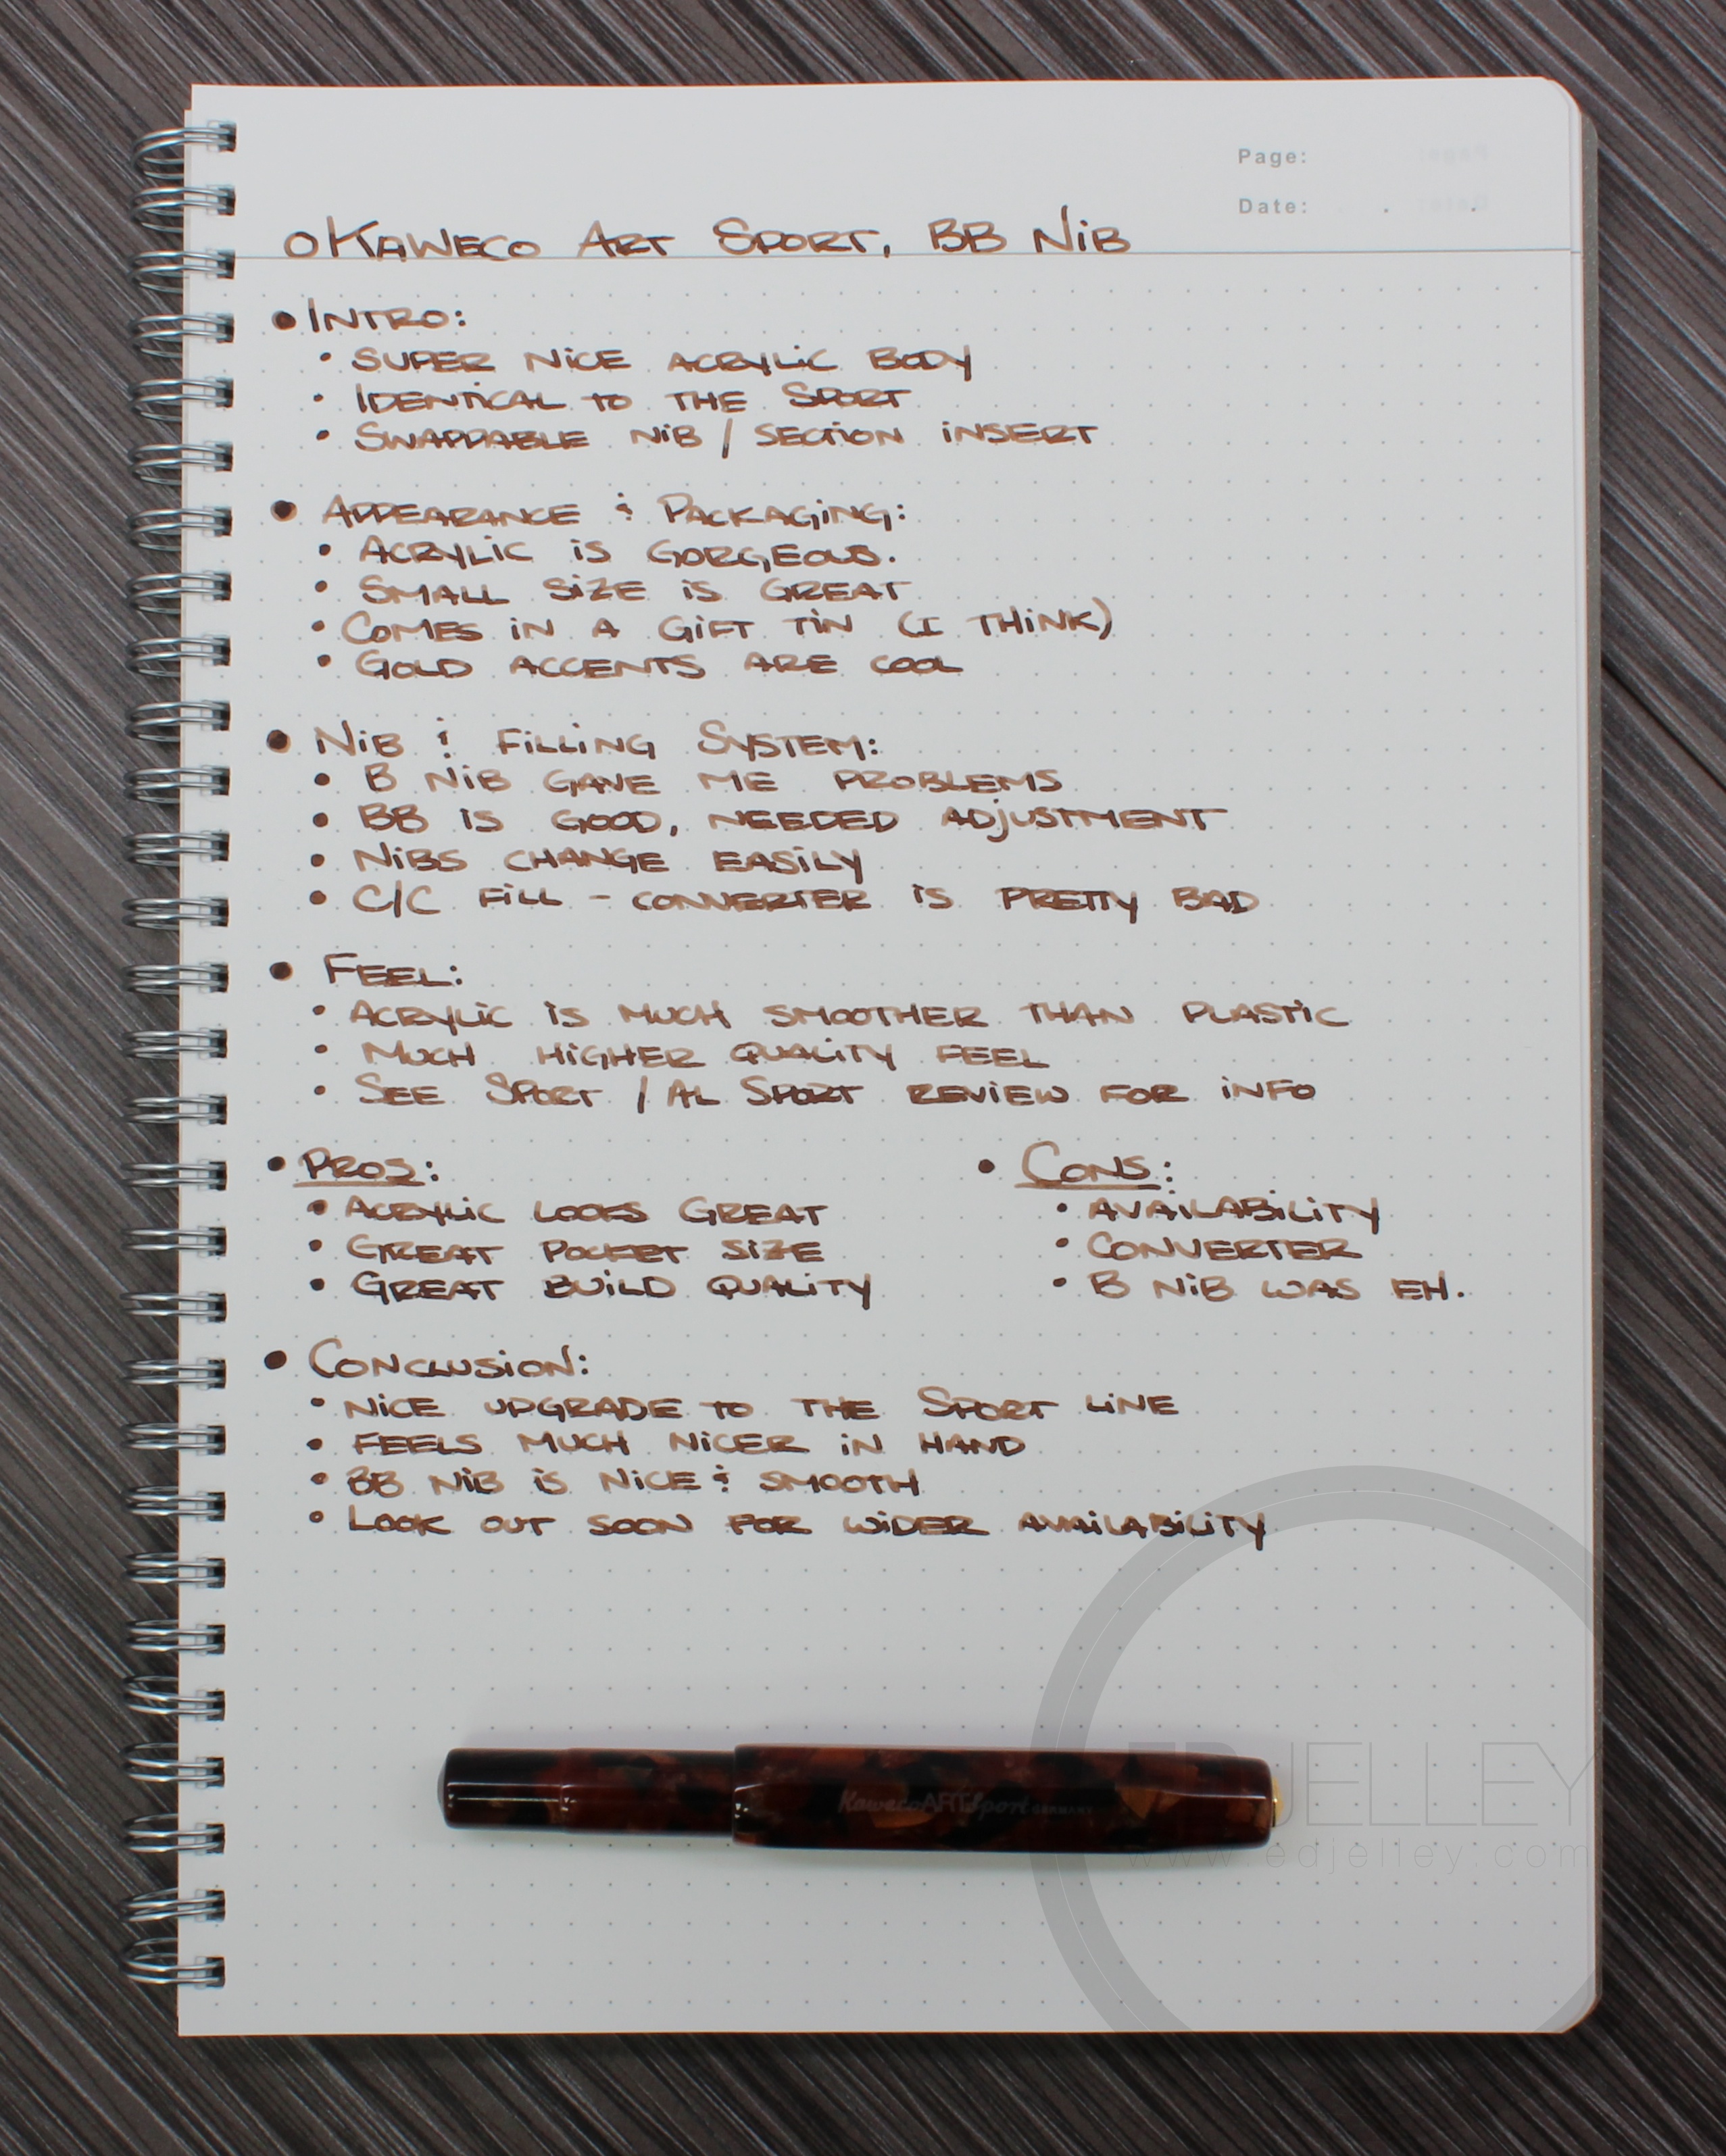 Page:
Date: . .
o KAWECO ART SPORT, BB NiB
• INTRO:
• SUPER NICE ACRYLIC BODY
• IDENTICAL TO THE SPORT
• SWAPPABLE NiB / SECTION INSERT
• APPEARANCE & PACKAGING:
• ACRYLIC IS GORGEOUS.
• SMALL SIZE IS GREAT
• COMES IN A GIFT TIN (I THINK)
• GOLD ACCENTS ARE COOL
• NiB & FILLING SYSTEM:
• B NIB GAVE ME PROBLEMS
• BB IS GOOD, NEEDED ADJUSTMENT
• NIBS CHANGE EASILY
• C/C FILL - CONVERTER IS PRETTY BAD
• FEEL:
• ACRYLIC IS MUCH SMOOTHER THAN PLASTIC
• MUCH HIGHER QUALITY FEEL
• SEE SPORT / AL SPORT REVIEW FOR INFO
• PROS: • CONS:
• ACRYLIC LOOKS GREAT • AVAILABILITY
• GREAT POCKET SIZE • CONVERTER
• GREAT BUILD QUALITY • B NIB WAS EH.
• CONCLUSION:
• NICE UPGRADE TO THE SPORT LINE
• FEELS MUCH NICER IN HAND
• BB NIB IS NICE & SMOOTH
• LOOK OUT SOON FOR WIDER AVAILABILITY
KawecoARTSport GERMANY
EDJELLEY
www.edjelley.com